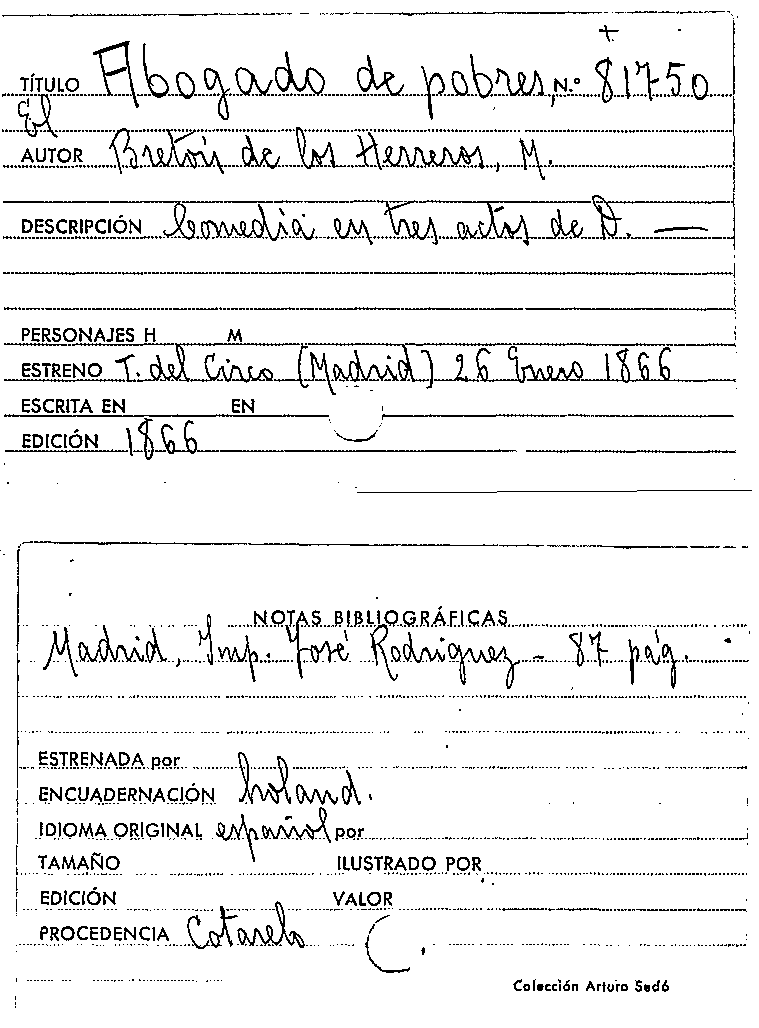 +
TÍTULO Abogado de pobres, N.º 81750
El
AUTOR Bretón de los Herreros, M.
DESCRIPCIÓN Comedia en tres actos de D. —
PERSONAJES H M
ESTRENO T. del Circo (Madrid) 26 Enero 1866
ESCRITA EN EN
EDICIÓN 1866
NOTAS BIBLIOGRÁFICAS
Madrid, Imp. José Rodriguez - 87 pág.
ESTRENADA por
ENCUADERNACIÓN holand.
IDIOMA ORIGINAL español por
TAMAÑO ILUSTRADO POR
EDICIÓN VALOR
PROCEDENCIA Cotarelo
Colección Arturo Sedó